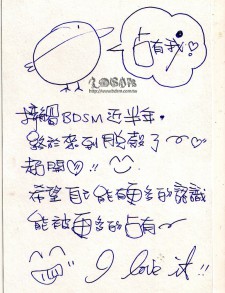 占有我!♡
http://www.bdsm.com.tw
接觸BDSM近半年。
終於來到脫殼了~♡
超開♡!!
希望自己能有更多的認識
能被更多的占有~
I love it!!